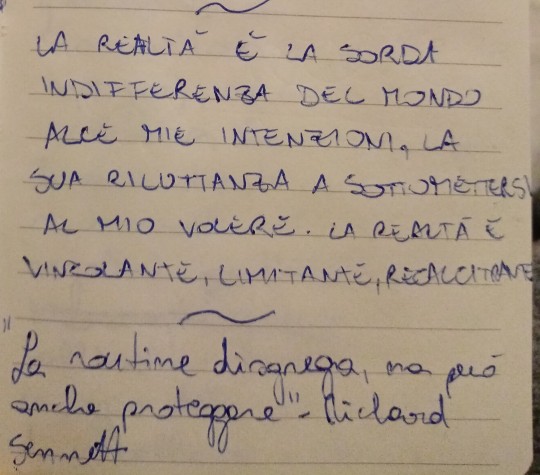 LA REALTÀ È LA SORDA
INDIFFERENZA DEL MONDO
ALLE MIE INTENZIONI, LA
SUA RILUTTANZA A SOTTOMETTERSI
AL MIO VOLERE. LA REALTÀ È
VINCOLANTE, LIMITANTE, RECALCITRANTE
"La routine disgrega, ma può
anche proteggere" - Richard
Sennett